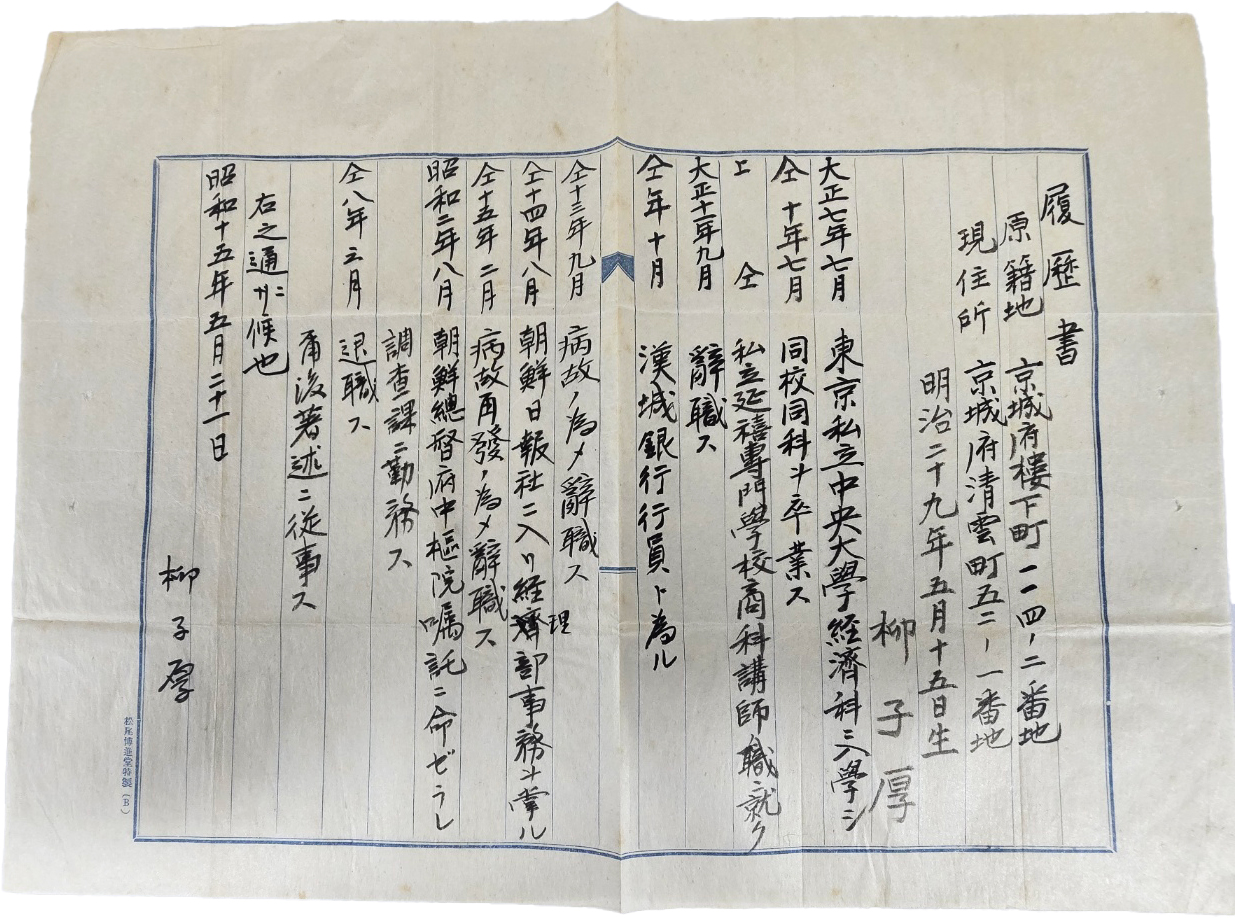 履歷書
原籍地 京城府樓下町一一四ノ二番地
現住所 京城府清雲町五二ノ一番地
明治二十九年五月十五日生
柳子厚
大正七年七月 東京私立中央大學経濟科ニ入學シ
仝十年七月 同校同科ヲ卒業ス
仝 私立延禧專門學校商科講師職就ク
大正十一年九月 辭職ス
仝年十月 漢城銀行行員ト為ル
仝十三年九月 病故ノ為メ辭職ス
仝十四年八月 朝鮮日報社ニ入リ経理部事務ヲ掌ル
仝十五年二月 病故再發ノ為メ辭職ス
昭和二年八月 朝鮮總督府中樞院嘱託ニ命ゼラレ
調查課ニ勤務ス
仝八年三月 退職ス
爾後著述ニ従事ス
右之通リニ候也
昭和十五年五月二十一日
柳子厚
松尾博進堂特製(B)